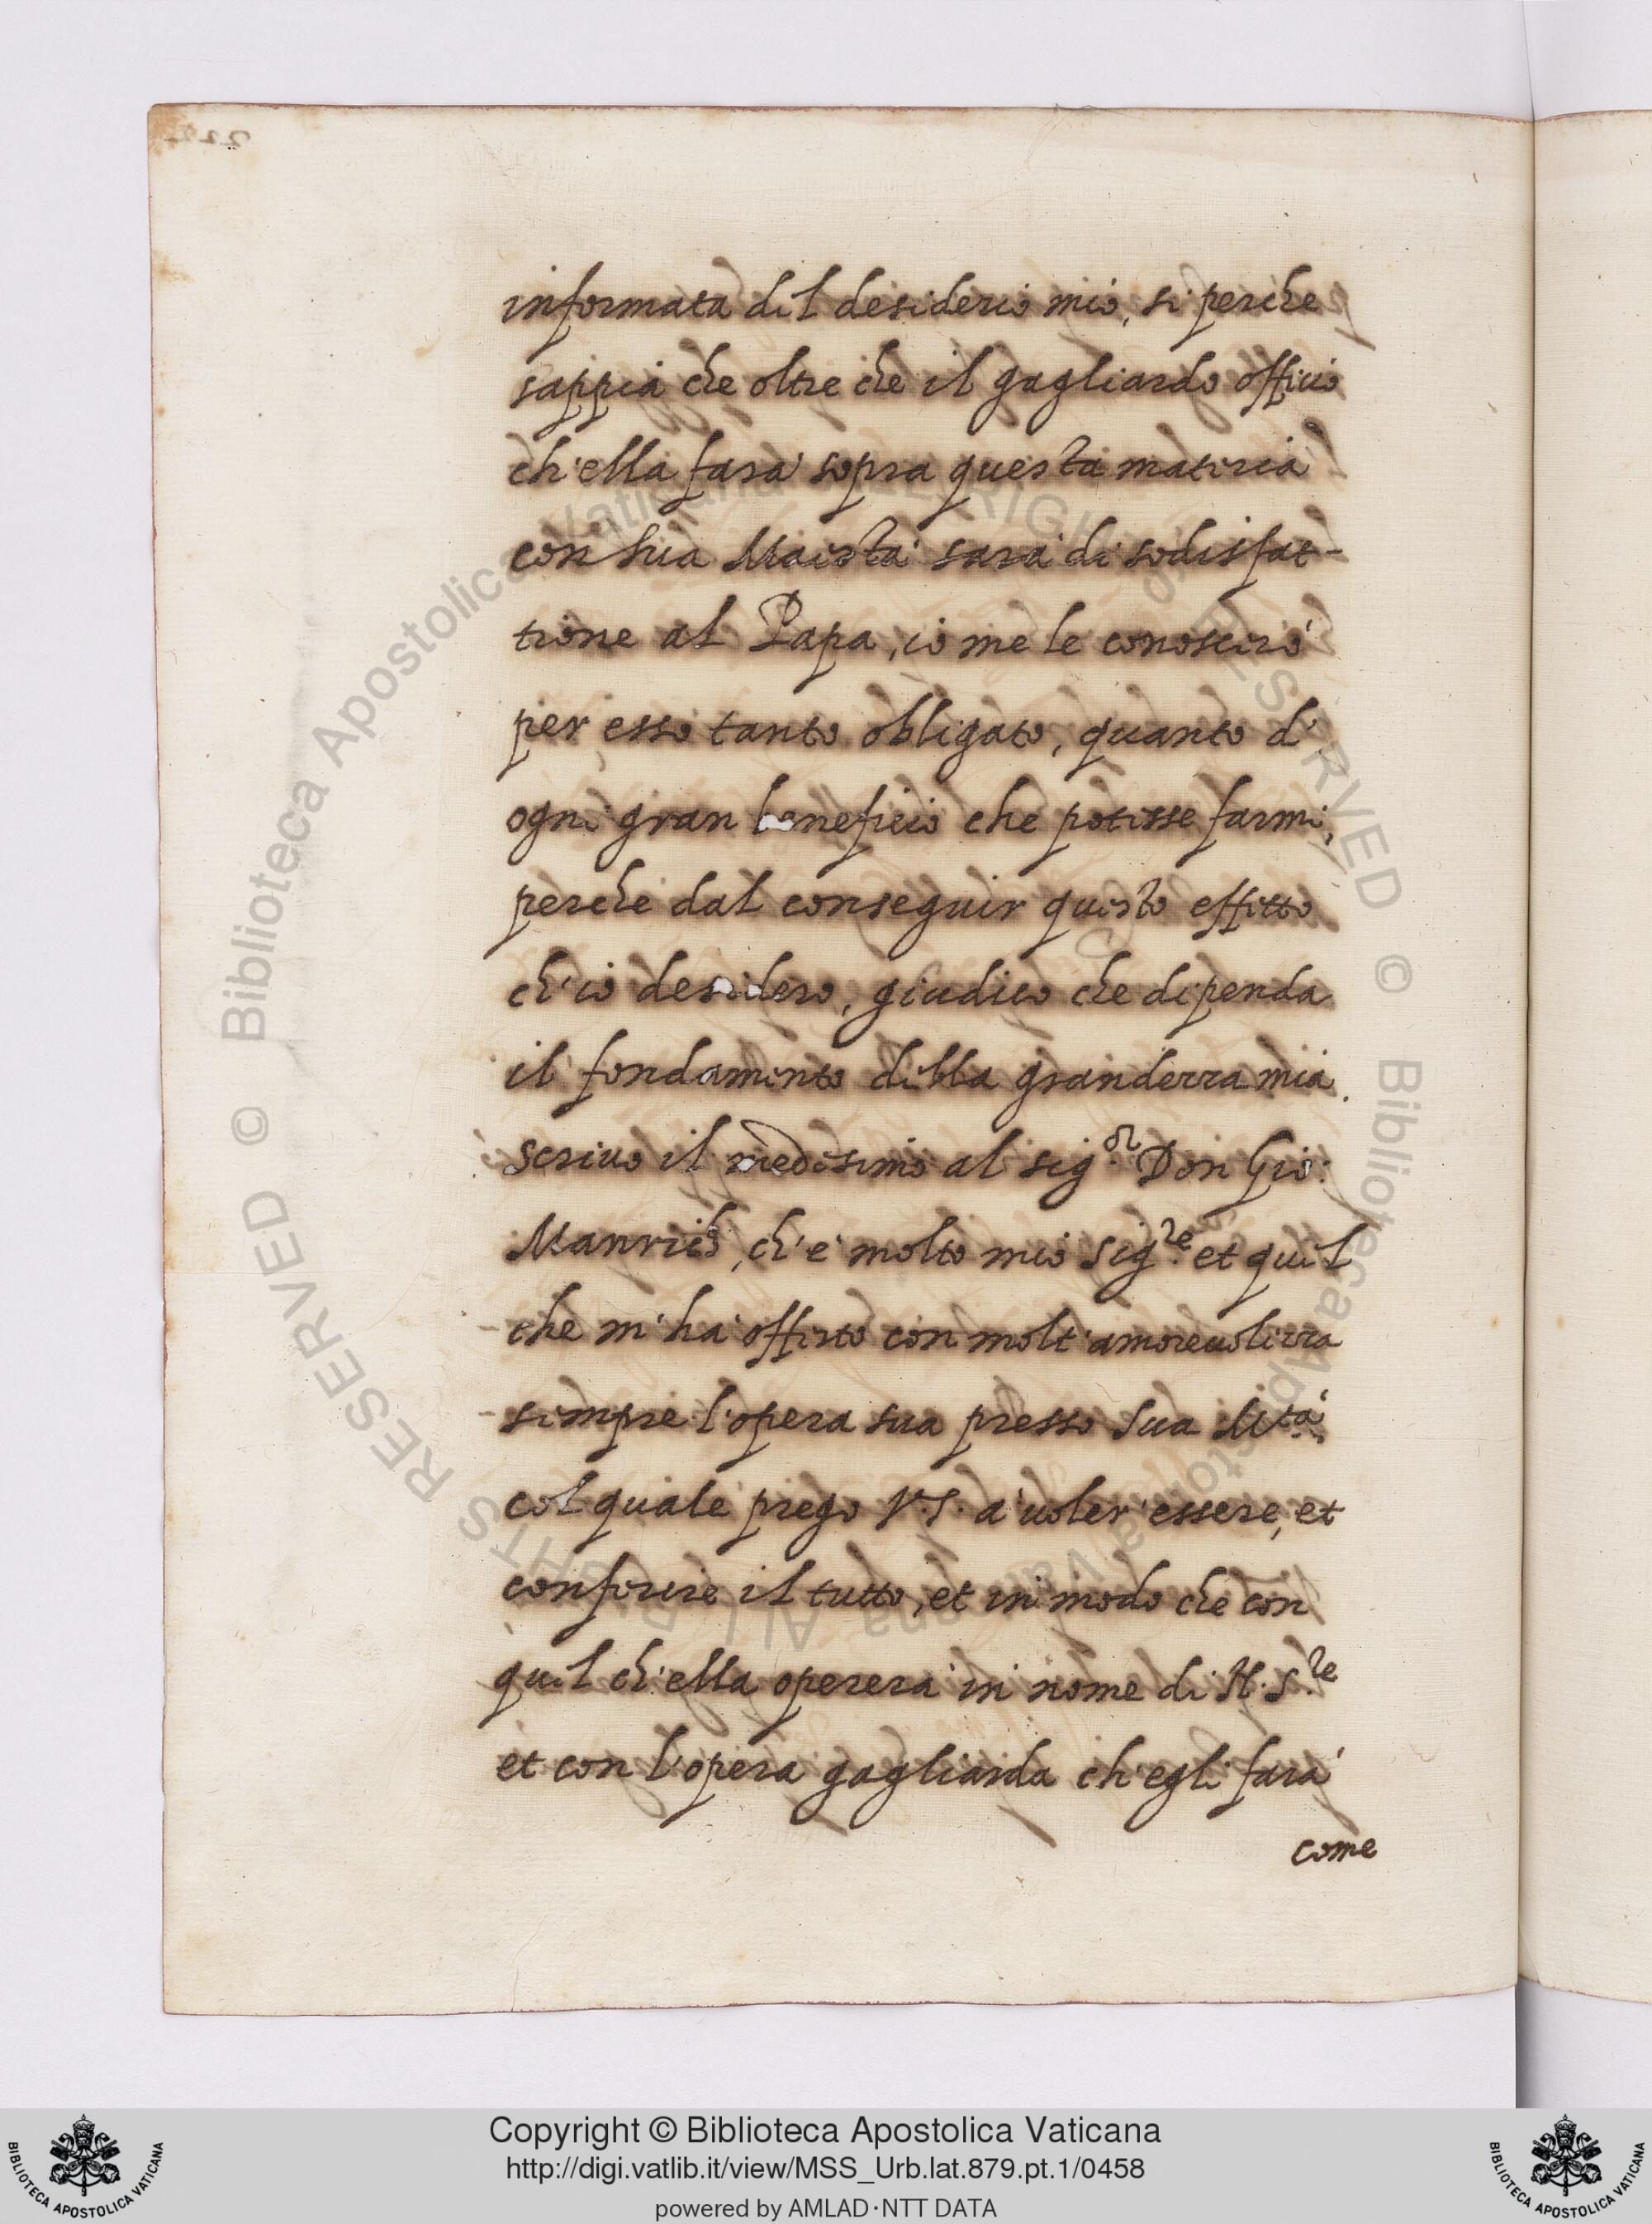 informata del desiderio mio, si perche
sappia che oltre che il gagliardo officio
ch'ella farà sopra questa materia
con sua Maestà sarà di sodisfat-
tione al Papa, io me le conoscerò
per esso tanto obligato, quanto d'
ogni gran beneficio che potesse farmi,
perche dal conseguir questo effetto
ch'io desidero, giudico che dipenda
il fondamento della grandezza mia.
Scrivo il medesimo al sig.or Don Gio:
Manrich, ch'è molto mio Sig.re et quel
che m'hà offerto con molt'amorevolezza
sempre l'opera sua presso Sua M.tà
col quale prego V.S. à voler'essere, et
conferire il tutto, et in modo che con
quel ch'ella opererà in nome di N.S.re
et con l'opera gagliarda ch'egli farà
come
Copyright © Biblioteca Apostolica Vaticana
http://digi.vatlib.it/view/MSS_Urb.lat.879.pt.1/0458
powered by AMLAD·NTT DATA
BIBLIOTECA APOSTOLICA VATICANA
BIBLIOTECA APOSTOLICA VATICANA